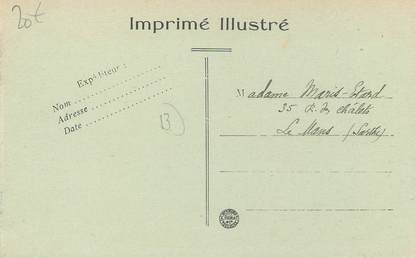 20€
Imprimé Illustré
Expéditeur :
Nom
Adresse
Date
13
Madame Maris-Etard
35 R. des châlets
Le Mans (Sarthe)